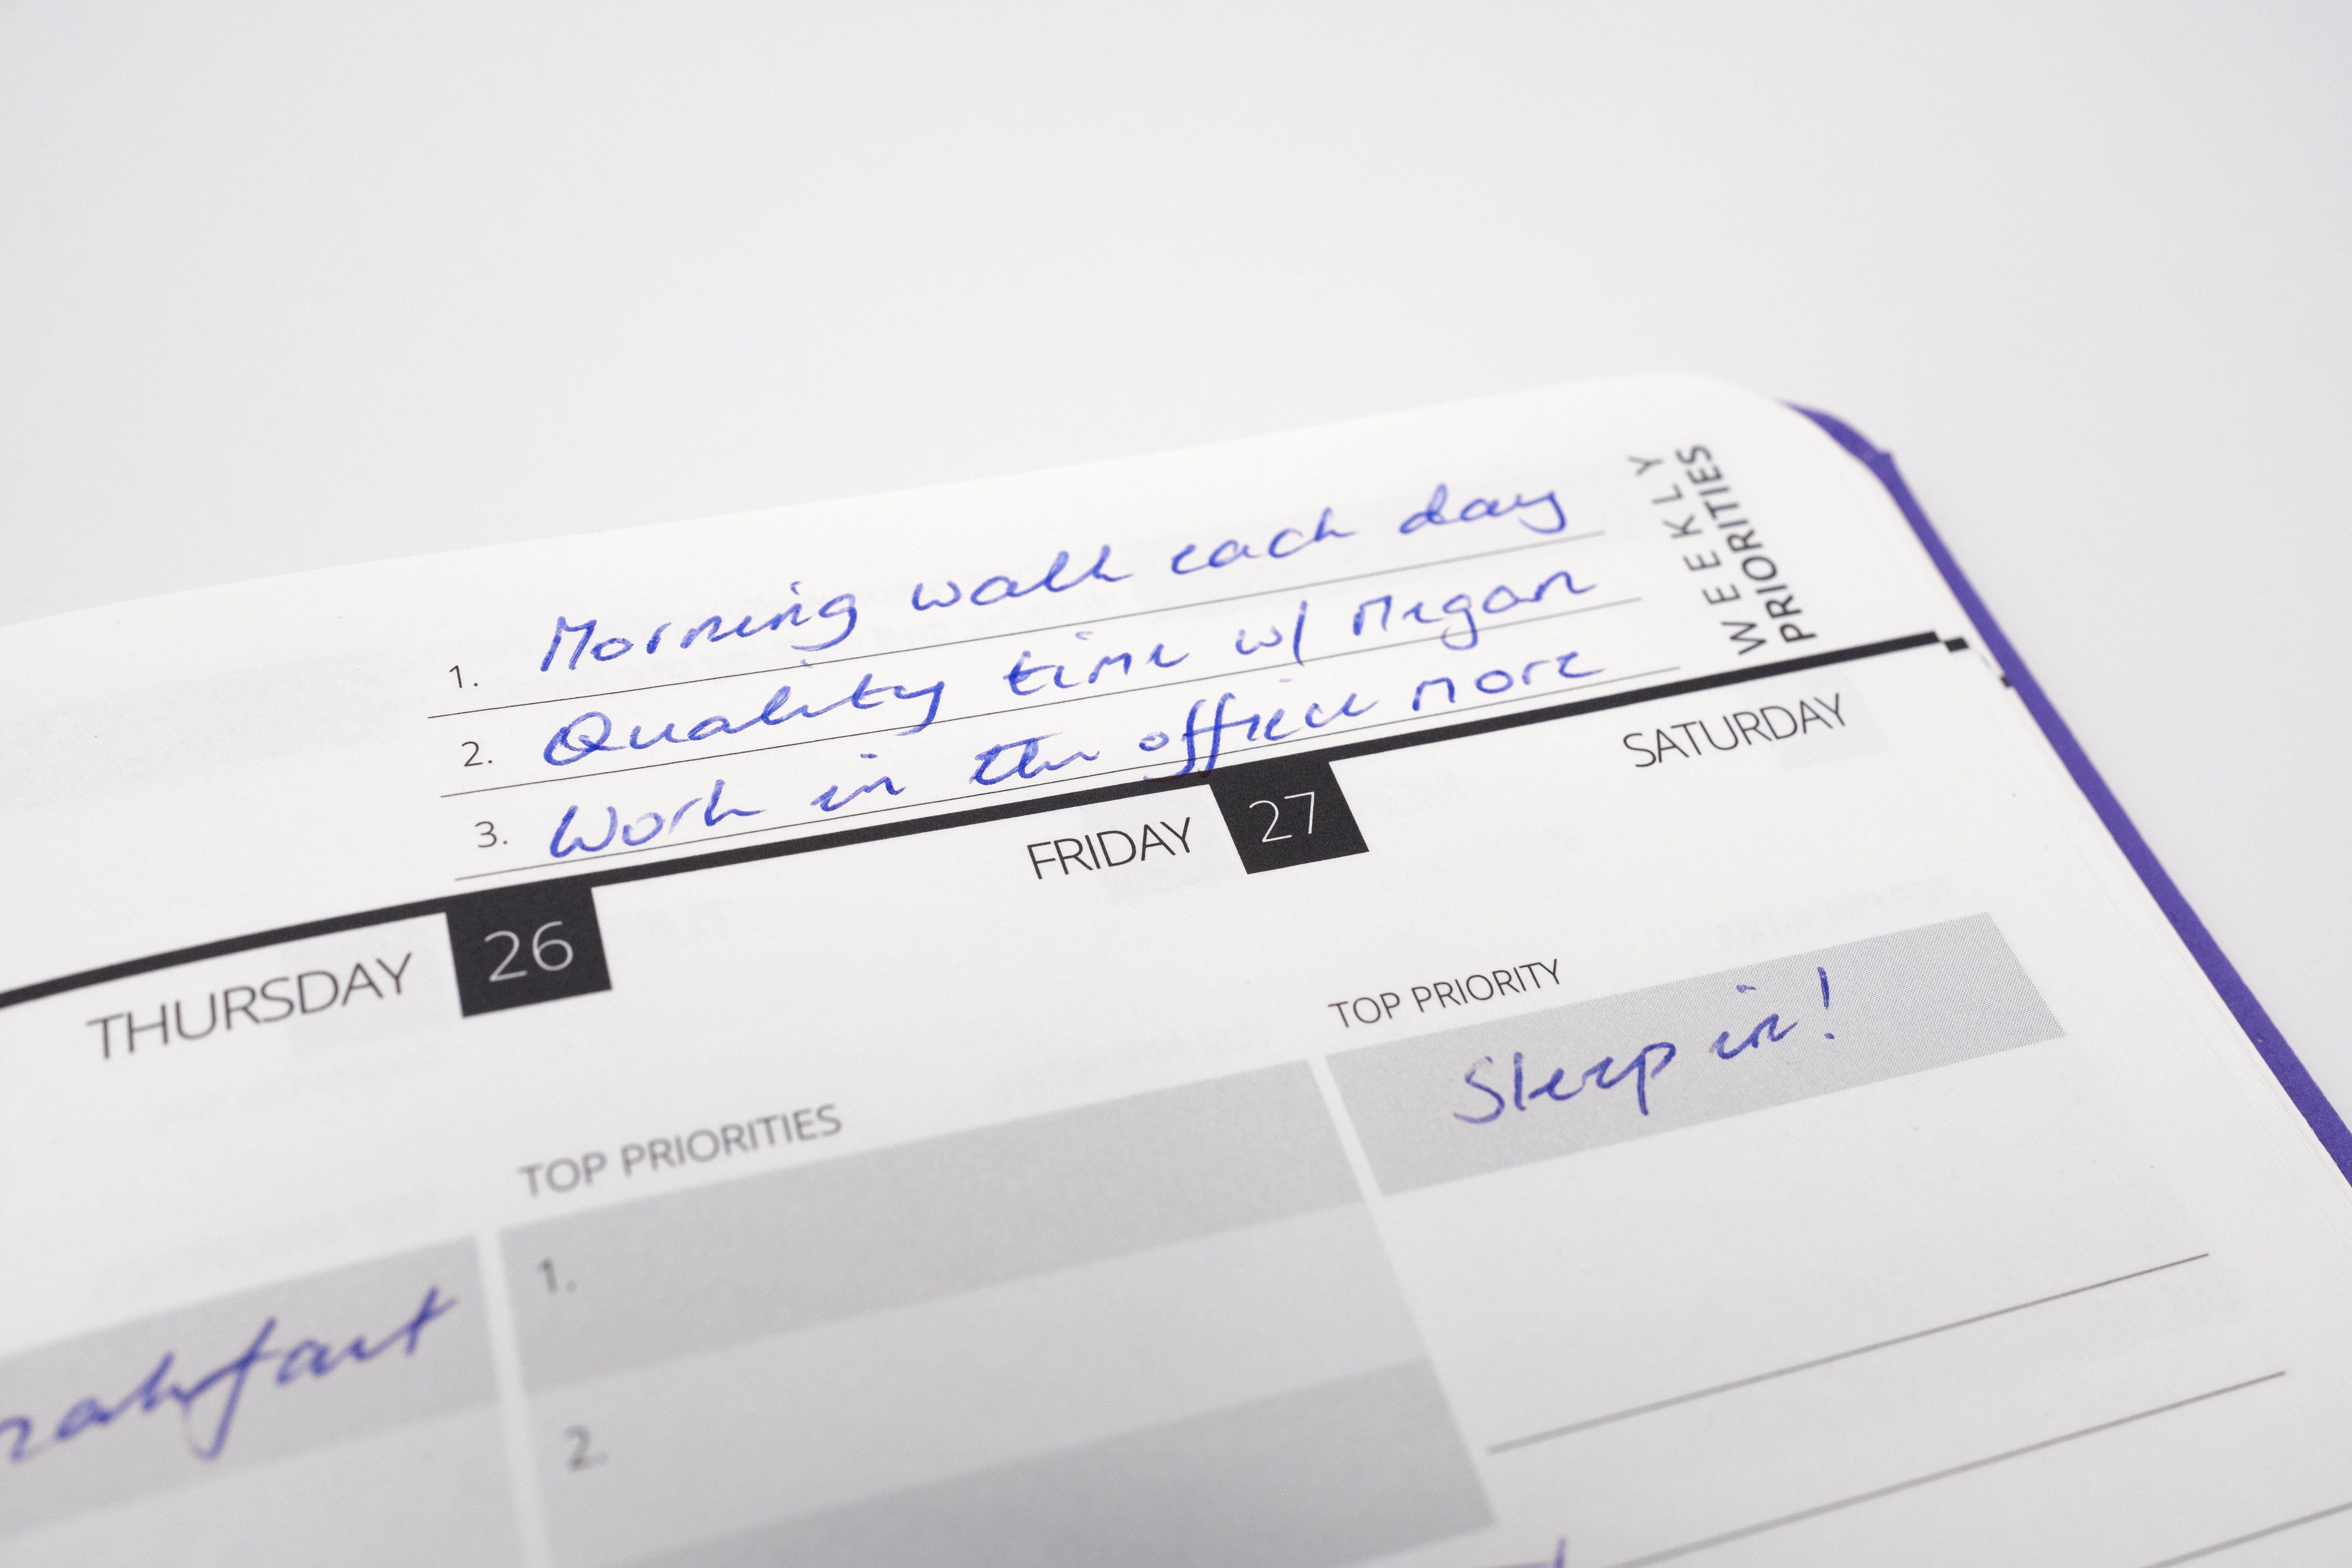 WEEKLY
PRIORITIES
1. Morning walk each day
2. Quality time w/ Megan
3. Work in the office more
THURSDAY 26
FRIDAY 27
SATURDAY
TOP PRIORITIES
1.
2.
TOP PRIORITY
Sleep in!